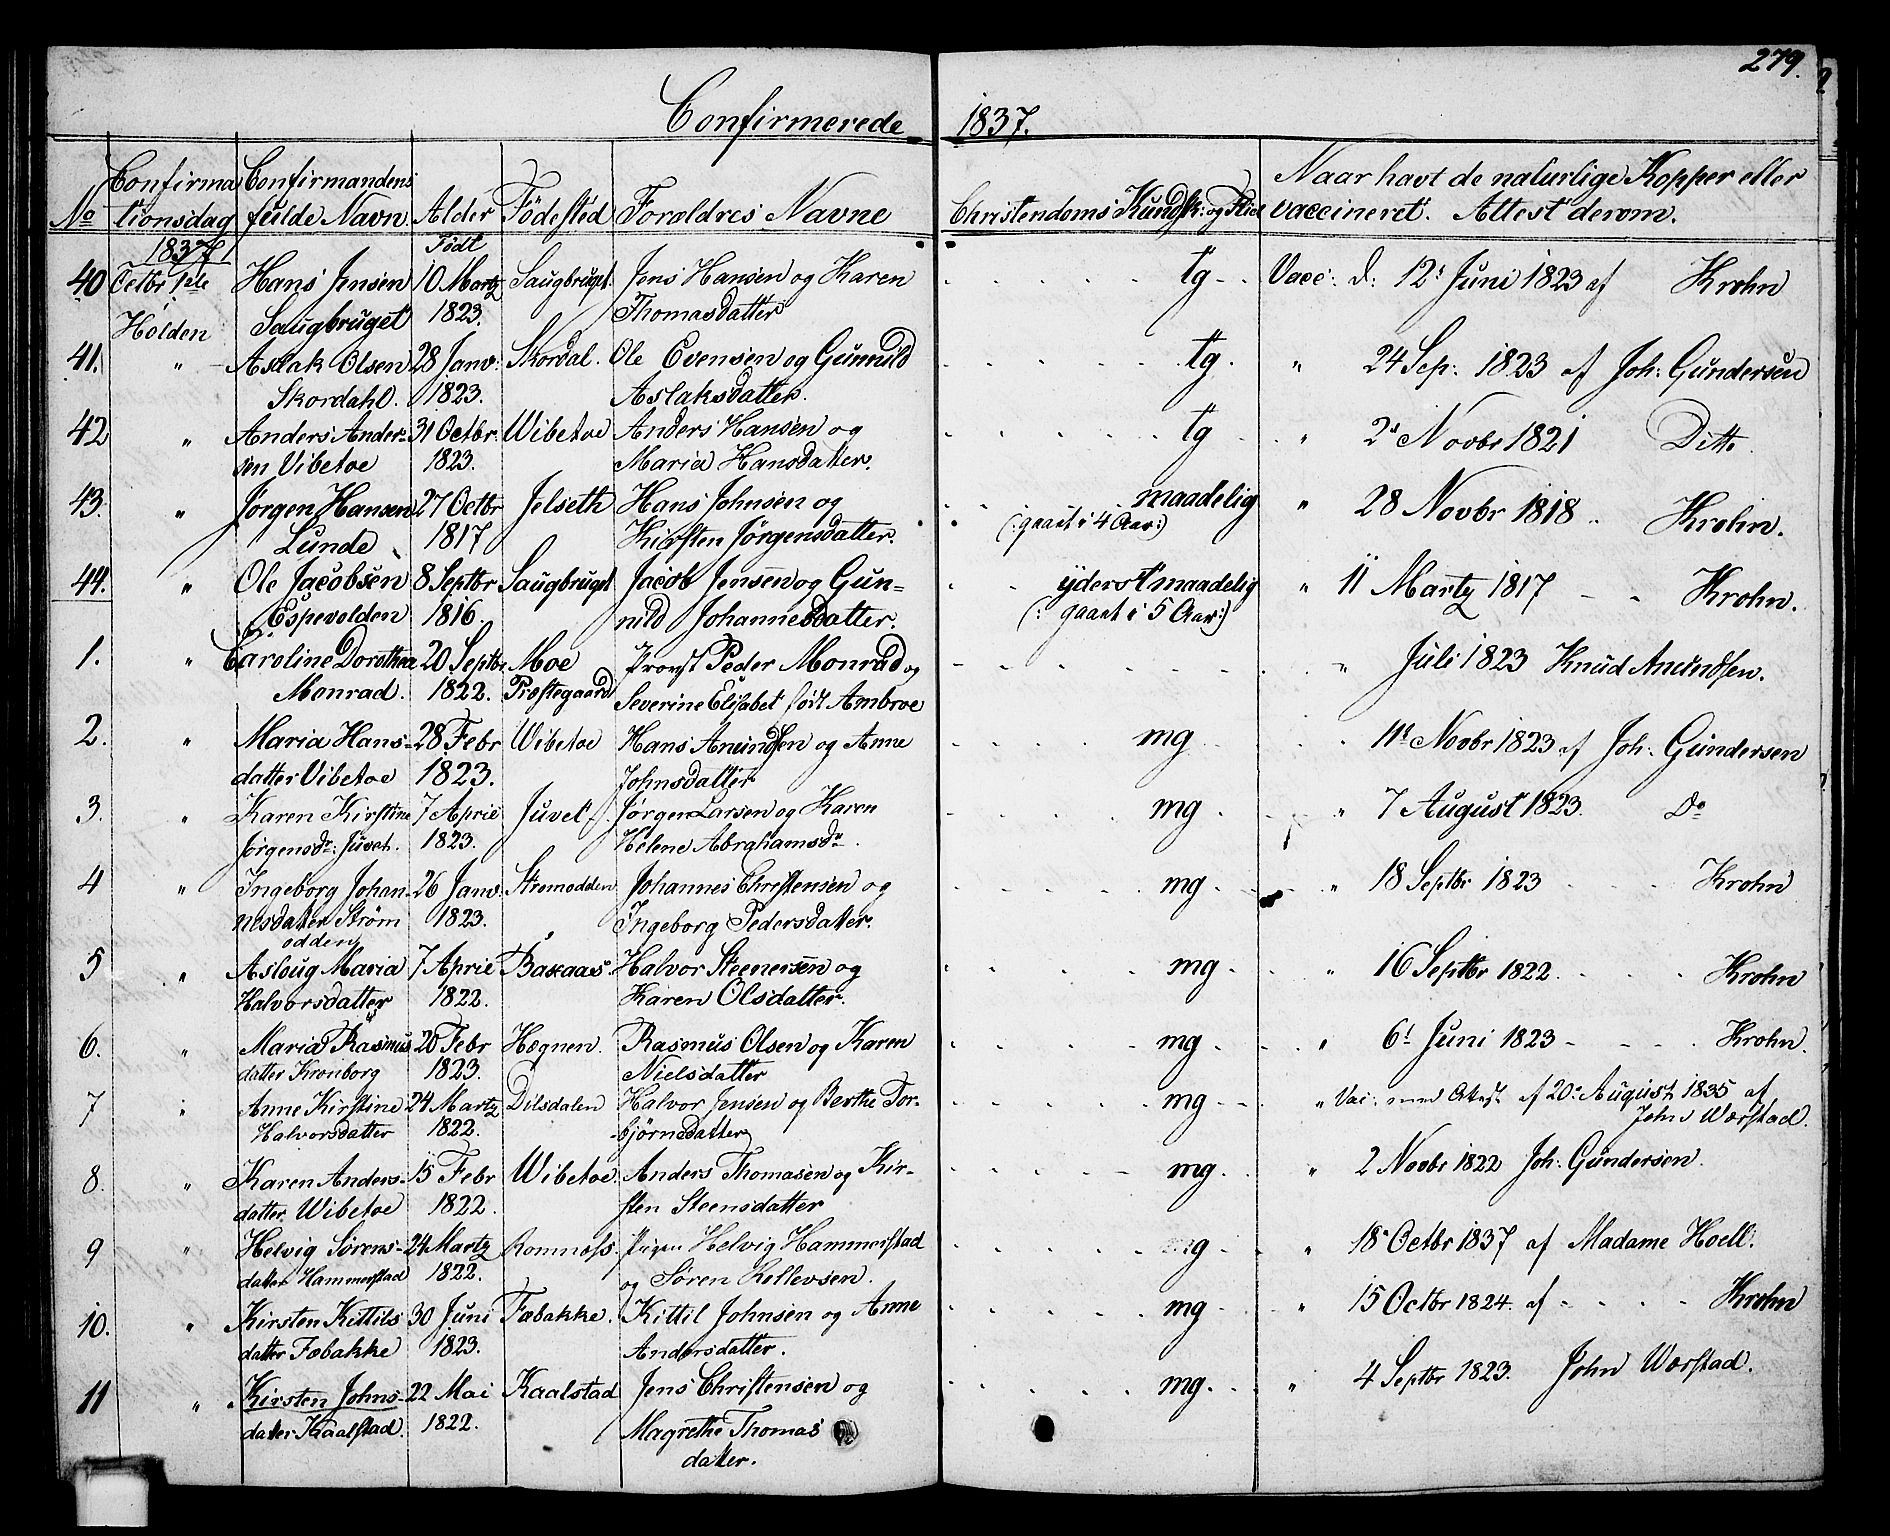 279.
Confirmerede 1837.
No Confirmationsdag Confirmandens fulde Navn Alder Födested Forældres Navne Christendoms Kundsk: og Flid Naar havt de naturlige Kopper eller vaccineret. Attest derom.
1837 Födt
40 Octbr 1ste Hans Jensen 10 Martz Saugbruget Jens Hansen og Karen tg Vacc: d: 12t Juni 1823 af Krohn
Holden Saugbruget 1823. Thomasdatter
41. " Aslak Olsen 28 Janv: Skordal. Ole Evensen og Gunnild tg. " 24 Sep: 1823 af Joh: Gundersen
Skordahl. 1823. Aslaksdatter.
42 " Anders Ander- 31 Octbr Wibetoe Anders Hansen og tg " 2t Novbr 1821 Ditto
sen Vibetoe 1823. Maria Hansdatter.
43. " Jørgen Hansen 27 Octbr Jelseth Hans Johnsen og maadelig " 28 Novbr 1818 Krohn.
Lunde 1817 Kirsten Jørgensdatter. (:gaaet i 4 Aar:)
44. " Ole Jacobsen 8 Septbr Saugbruget Jacob Jensen og Gun- yderst maadelig " 11 Martz 1817 Krohn.
Espevolden 1816. nild Johannesdatter. (: gaaet i 5 Aar:)
1. " Caroline Dorothea 20 Septbr Moe Provst Peder Monrad og " Juli 1823 Knud Amundsen.
Monrad. 1822. Præstegaard Severine Elisabet født Ambroe
2. " Maria Hans- 28 Febr Wibetoe Hans Amundsen og Anne mg 11t Novbr 1823 af Joh: Gundersen
datter Vibetoe 1823. Johnsdatter
3. " Karen Kirstine 7 April Juvet Jørgen Larsen og Karen mg " 7 August 1823. Do
Jørgensdr: Juvet. 1823. Helene Abrahamsdr.
4 " Ingeborg Johan- 26 Janv. Strømodden Johannes Christensen og mg " 18 Septbr 1823 Krohn
nesdatter Strøm 1823. Ingeborg Pedersdatter.
odden
5 " Asloug Maria 7 April Bakaas Halvor Steenersen og mg " 16 Septbr 1822. Krohn
Halvorsdatter 1822. Karen Olsdatter.
6. " Maria Rasmus 20 Febr Hægnen. Rasmus Olsen og Karen mg " 6t Juni 1823 Krohn.
datter Kronborg 1823. Nielsdatter
7 " Anne Kirstine 24 Martz Dilsdalen Halvor Jensen og Berthe Tor- mg " Vac: med Attest af 20t August 1835 af
Halvorsdatter 1822. björnsdatter John Wærstad.
8. " Karen Anders- 15 Febr Wibetoe. Anders Thomasen og Kir- mg. " 2 Novbr 1822 Joh: Gundersen.
datter Wibetoe 1822. sten Steensdatter
9 " Helvig Sørens- 24 Martz Romnæs. Pigen Helvig Hammerstad mg " 18t Octbr 1837 af Madame Hoell.
datter Hammerstad 1822. og Søren Kellevsen.
10. " Kirsten Kittils 30 Juni Fæbakke. Kittil Johnsen og Anne mg " 15 Octbr 1824 af Krohn
datter Fæbakke 1823. Andersdatter.
11 " Kirsten Johns- 22 Mai Kaalstad Jens Christensen og mg. " 4 Septbr 1823. John Wærstad.
datter Kaalstad. 1822. Magrethe Thomas
datter.